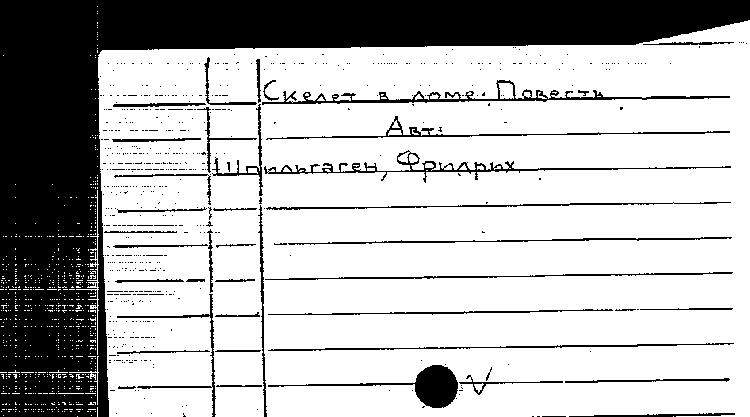 Скелет в доме. Повесть
Авт:
Шпильгаген, Фридрих